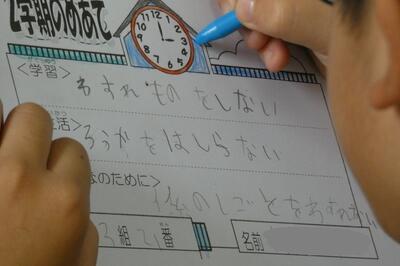 2学期のめあて
<学習>
わすれものをしない
活>
ろうかをはしらない
なのために>
係のしごとをわすれない
3組21番 名前